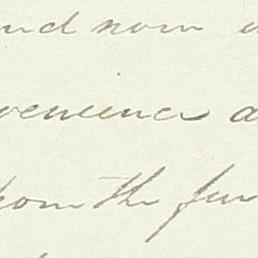 and now
venience a
from the fur